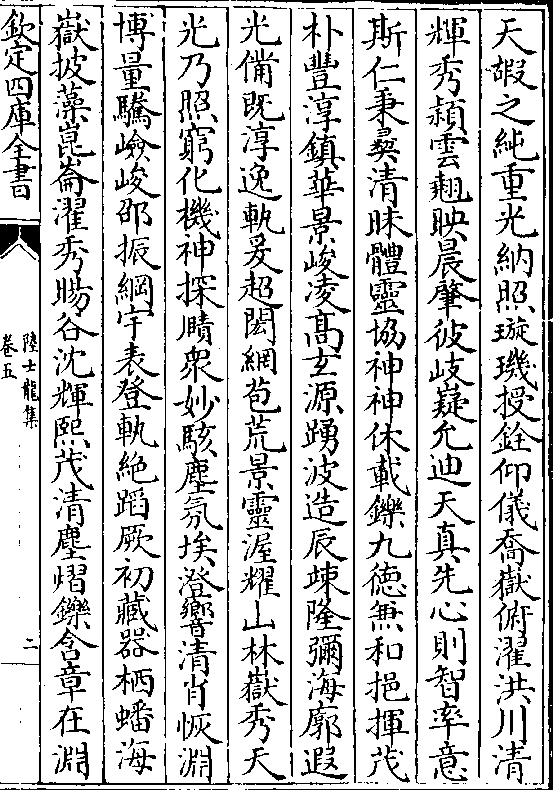 天嘏之純重光納照璇璣授銓仰儀喬嶽俯濯洪川清
輝秀穎雲翹映晨肇彼岐嶷允迪天真先心則智率意
斯仁秉彛清昧體靈協神神休載鑠九德無和挹揮茂
朴豐淳鎮華景峻凌髙玄源踴波造辰竦隆彌海廓遐
光備既淳逸軌爰超閎網苞荒景靈渥耀山林嶽秀天
光乃照窮化機神探賾衆妙駭塵氛埃澄響清肖恢淵
博量驕嶮峻邵振綱宇表登軌絶蹈厥初藏器栖蟠海
嶽披藻崑崙濯秀暘谷沈輝熙茂清塵熠鑠含章在淵
欽定四庫全書
陸士龍集
卷五
二